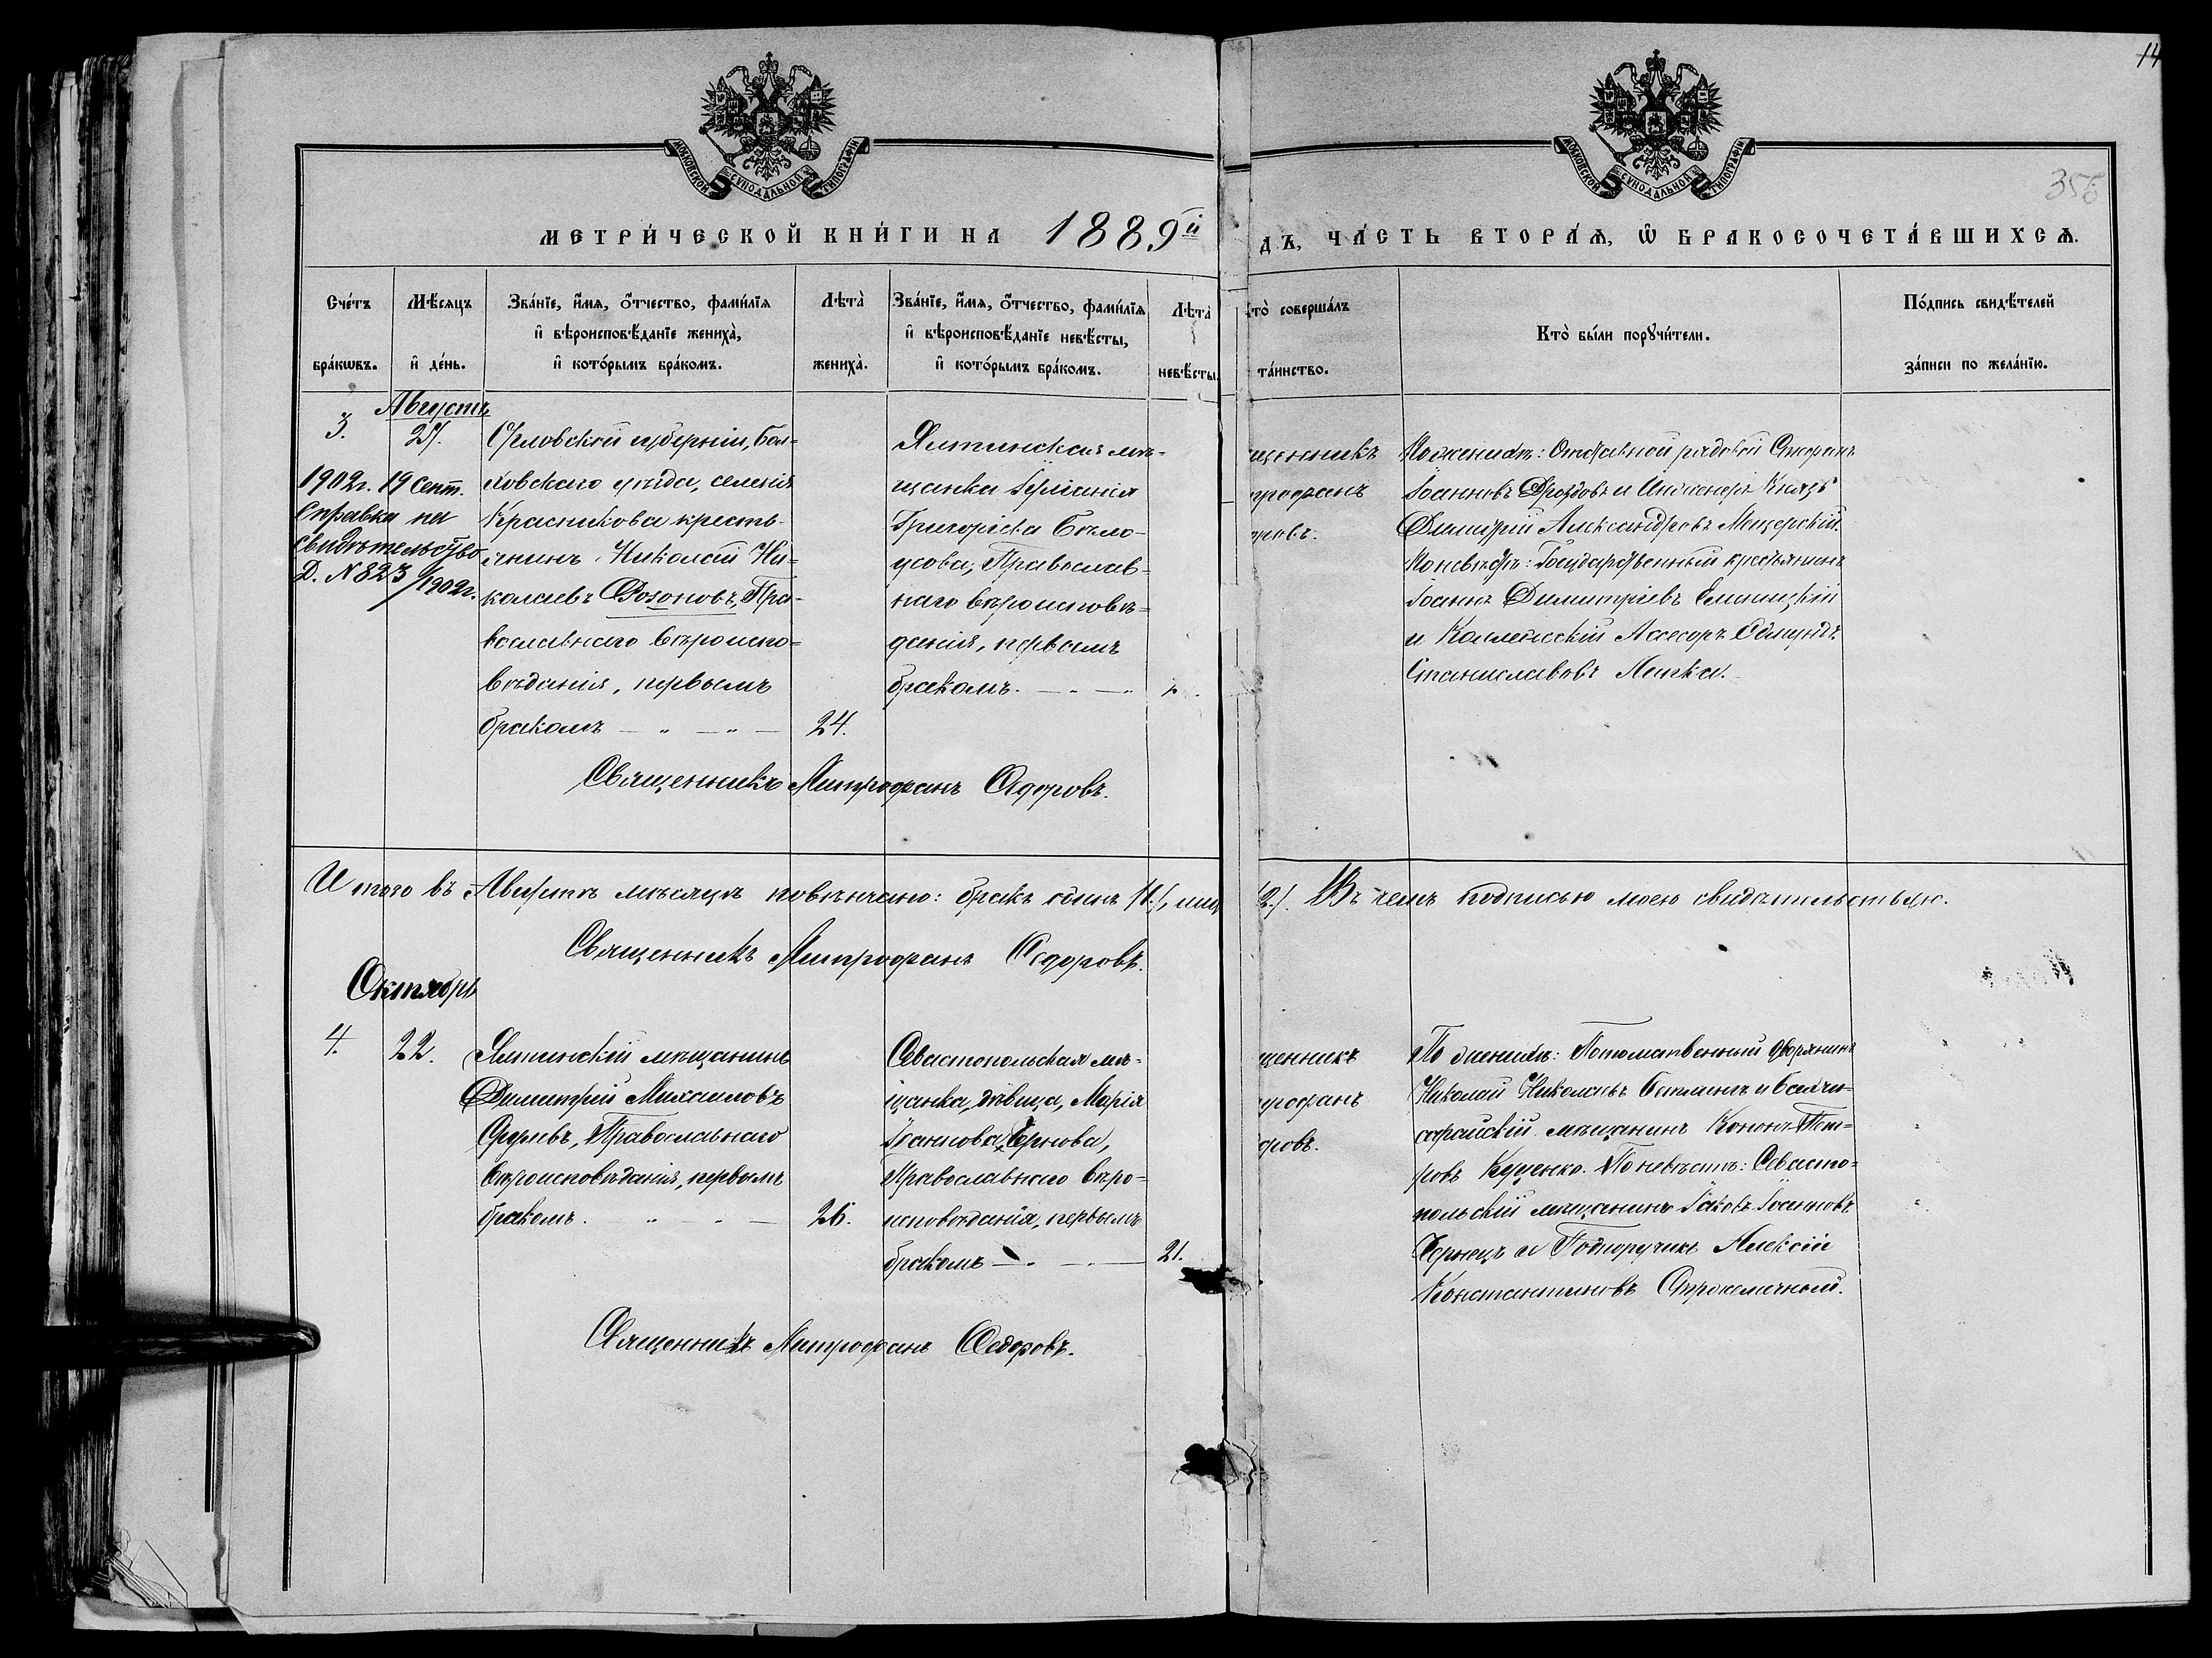 14
356
МОСКОВСКОЙ СѴНОДАЛЬНОЙ ТИПОГРАФІИ
МОСКОВСКОЙ СѴНОДАЛЬНОЙ ТИПОГРАФІИ
МЕТРИ́ЧЕСКОЙ КНИ́ГИ НА 1889й
дъ, ЧА́СТЬ ВТОРА́Ѧ, Ѽ БРАКОСОЧЕТА́ВШИХСѦ.
Сче́тъ бра́кѡвъ.
Мѣ́сяцъ и҆ де́нь.
Зва́нїе, и҆́мя, о҆́тчество, фами́лїя
и҆ вѣроисповѣ́данїе жениха̀,
и҆ кото́рымъ бра́комъ.
Лѣта̀ жениха̀.
Зва́нїе, и҆́мя, о҆́тчество, фами́лїя
и҆ вѣроисповѣ́данїе невѣ́сты,
и҆ кото́рымъ бра́комъ.
Лѣта̀ невѣ́сты.
то̀ соверша́лъ
та́инство.
Кто̀ бы́ли порꙋчи́тели.
По́дпись свидѣ́телей
за́писи по жела́нїю.
Августъ
3.
27.
1902г. 19 Сент.
Справка на
свидѣтельство
Д. N 823/1902г.
Орловской губерніи, Бол-
ховскаго уѣзда, селенія
Красникова кресть-
янинъ Николай Ни-
колаевъ Розоновъ, Пра-
вославнаго вѣроиспо-
вѣданія, первымъ
бракомъ
24.
Ялтинская мѣ-
щанка Іуліанія
Григоріева Бѣло-
усова, Православ-
наго вѣроисповѣ-
данія, первымъ
бракомъ.
щенникъ
трофанъ
оровъ.
По женихѣ: Отставной рядовой Стефанъ
Іоанновъ Дроздовъ и Инженеръ Князь
Димитрій Александровъ Мещерскій.
По невѣстѣ: Государственный крестьянинъ
Іоаннъ Димитріевъ
и Коллежскій Ассесоръ Эдмундъ
Станиславовъ
Священникъ Митрофанъ Ѳедоровъ.
Итого въ Августѣ мѣсяцѣ повѣнчано: бракъ одинъ /1./, лиц /2./. Въ чемъ подписью моею свидѣтельствую.
Священникъ Митрофанъ Ѳедоровъ.
Октябрь
4.
22.
Ялтинскій мѣщанинъ
Димитрій Михаиловъ
Православнаго
вѣроисповѣданія, первымъ
бракомъ.
26.
Севастопольская мѣ-
щанка, дѣвица, Марія
Іоаннова Чернова,
Православнаго вѣро-
исповѣданія, первымъ
бракомъ
21.
щенникъ
трофанъ
оровъ.
По женихѣ: Потомственный дворянинъ
Николай Николаевъ и Бахчи-
сарайскій мѣщанинъ Кононъ Пет-
ровъ Куценко. По невѣстѣ: Севасто-
польскій мѣщанинъ Іаковъ Іоанновъ
Чернецъ и Подпоручикъ Алексій
Константиновъ
Священникъ Митрофанъ Ѳедоровъ.